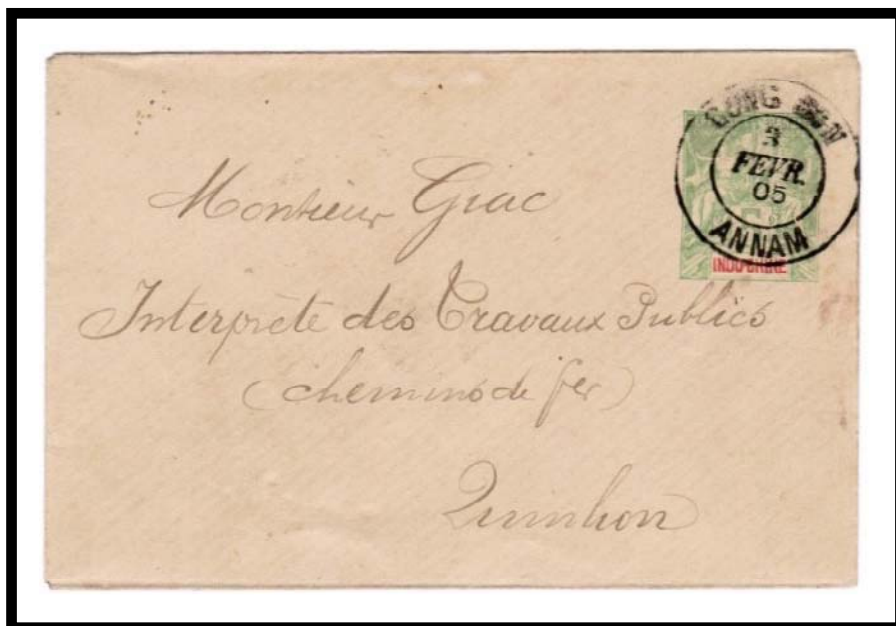 CUNG SON
3
FEVR.
05
ANNAM
INDO-CHINE
Monsieur Giac
Interprète des Travaux Publics
(chemins de fer)
Quinhon